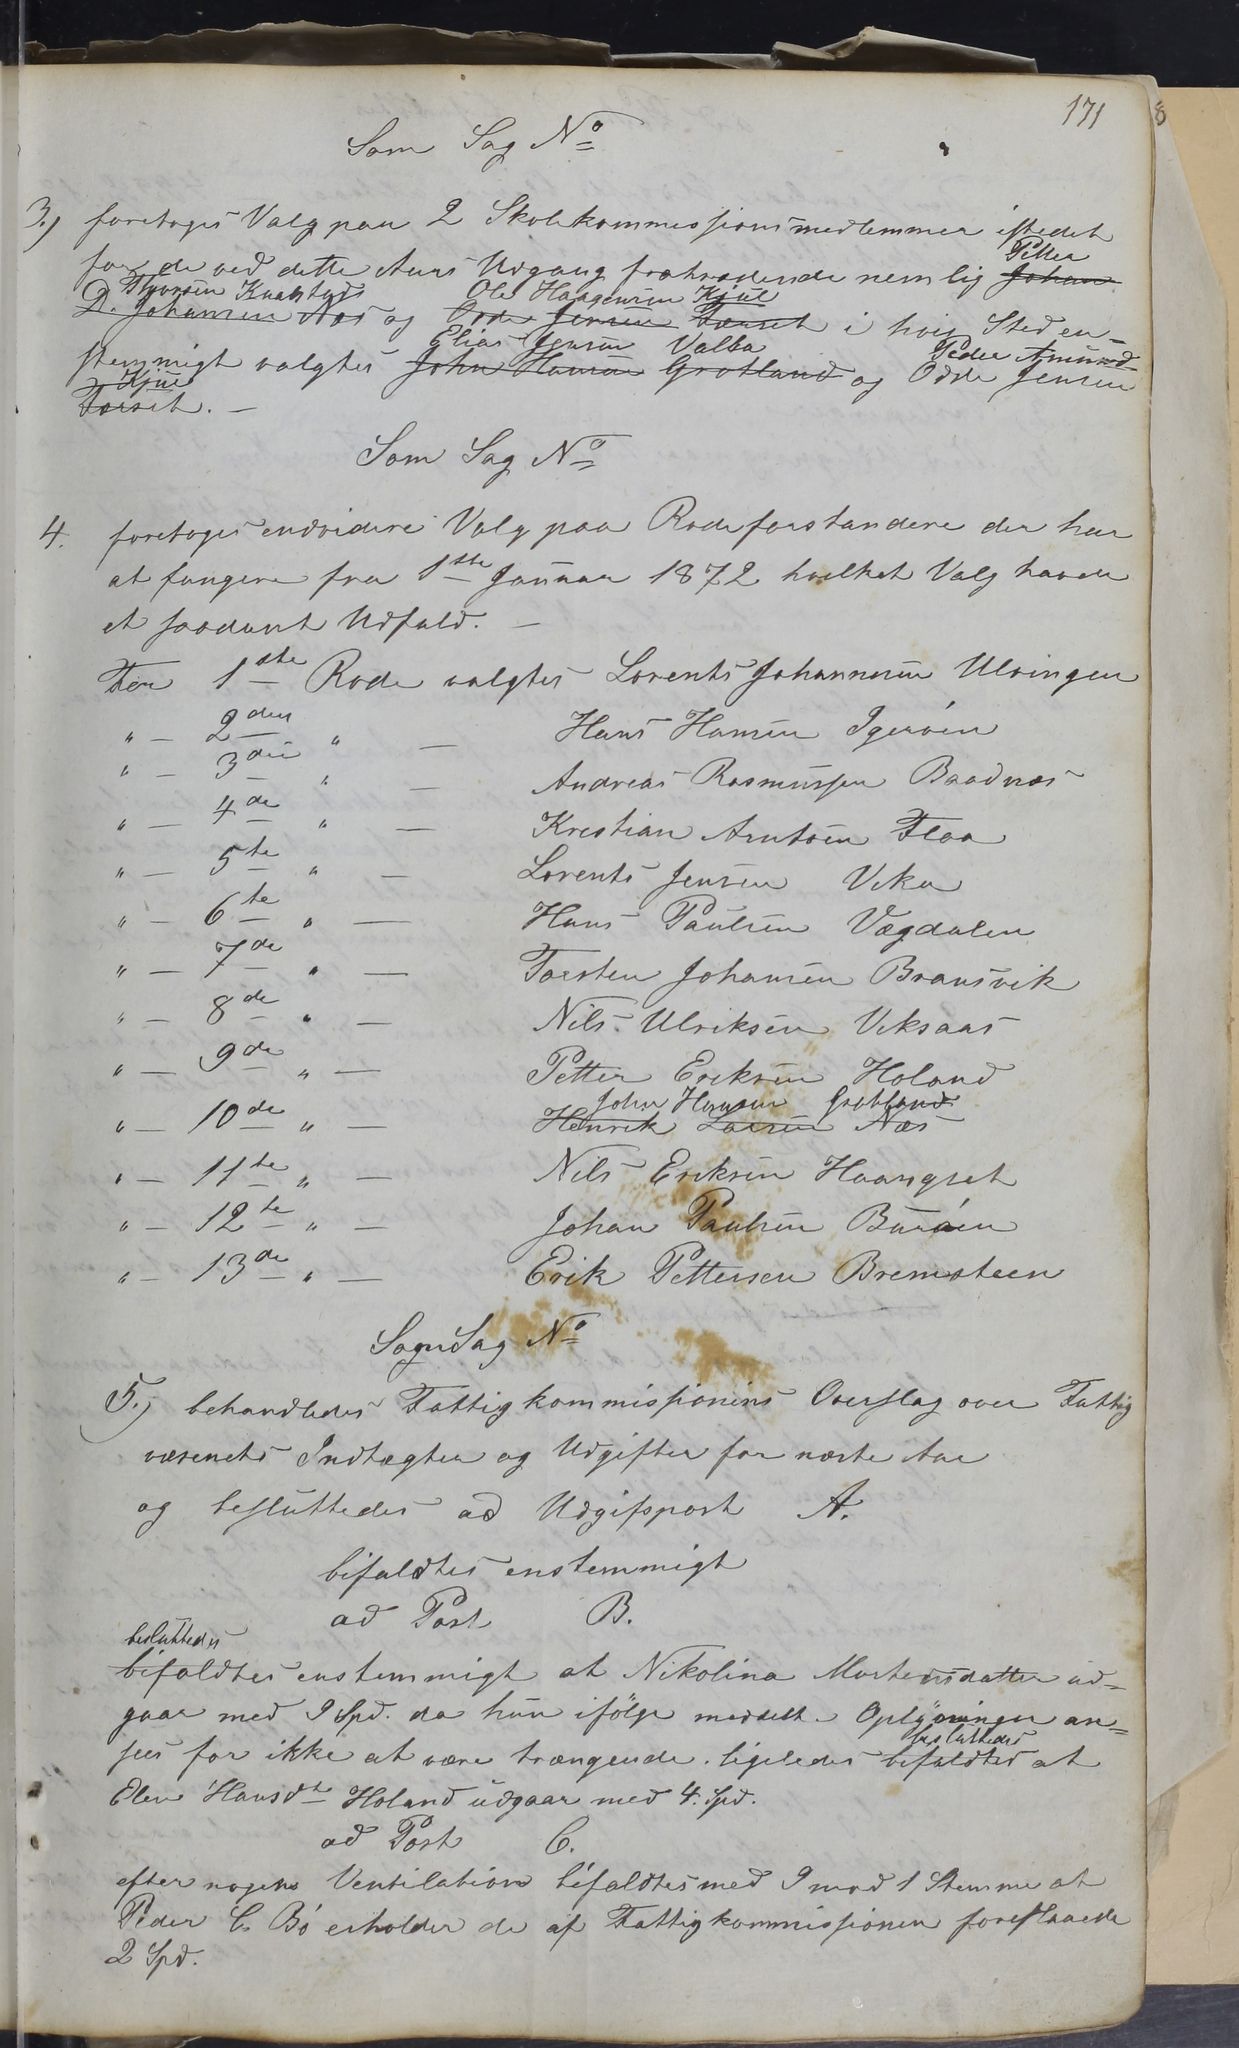 171
Som Sag No
3.) foretoges Valg paa 2 Skolekommissionsmedlemmer istedet
for de ved dette Aars Udgang fratrædende nemlig Johan Petter
D. Johansen Næs og Odde Jensen Forset i hvis Sted en-
Ole Haagensen Kjul
stemmigt valgtes John Hansen Grotland og Odde Jensen
Elias Jensen Valba Peder Amund
Kjul
Forset. -
Som Sag No
4. foretoges endvidere Valg paa Rodeforstandere der har
at fungere fra 1ste Januar 1872 hvilket Valg havde
et saadant Udfald. -
For 1ste Rode valgtes Lorents Johannesen Ulvingen
" - 2den " - Hans Hansen Igerøen
" - 3die " - Andreas Rasmussen Baadnæs
" - 4de " - Krestian Arntsen Floa
" - 5te " - Lorents Jensen Vika
" - 6te " - Hans Paulsen Vægdalen
" - 7de " - Torsten Johansen Bransvik
" - 8de " - Nils Ulriksen Viksaas
" - 9de " - Petter Eriksen Holand
John Hansen Grotland
" - 10de " - Henrik Larsen Næs
" - 11te " - Nils Eriksen Haangset
" - 12te " - Johan Paulsen Burøen
" - 13de " - Erik Pettersen Bremsteen
Sag No
5.) behandledes Fattigkommissionens Overslag over Fattig
væsenets Indtægter og Udgifter for næste Aar
og besluttedes ad Udgifspost A.
bifaldtes enstemmigt
ad Post B.
besluttedes
bifaldtes enstemmigt at Nikolina Mortensdatter ud-
gaar med 9 Spd. da hun ifölge meddelte Oplysninger an-
besluttedes
sees for ikke at være trængende. ligeledes bifaldtes at
Elen Hansdt Holand udgaar med 4. Spd.
ad Post C.
efter nogen Ventilation bifaldtes med 9 mod 1 Stemme at
Peder C. Bö erholder de af Fattigkommissionen foreslaaede
2 Spd.